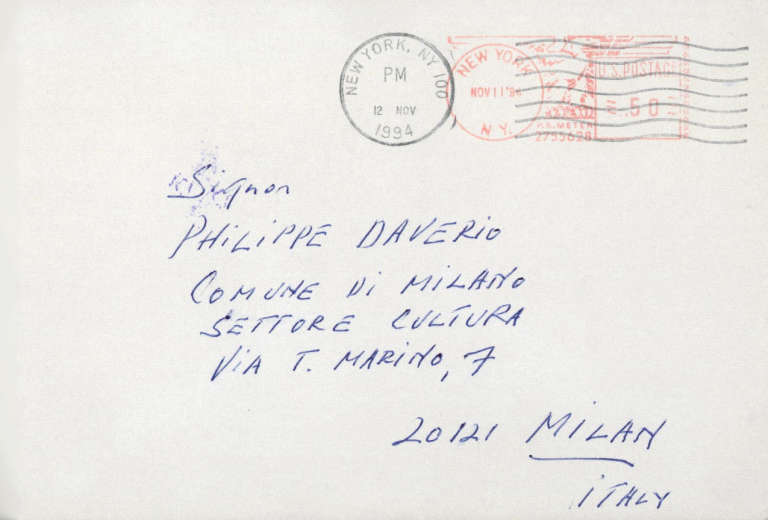 NEW YORK, NY 100
PM
12 NOV
1994
NEW YORK
NOV 11 '94
N.Y.
U.S. POSTAGE
.50
2755628
Signor
PHILIPPE DAVERIO
COMUNE DI MILANO
SETTORE CULTURA
VIA T. MARINO, 7
20121 MILAN
ITALY